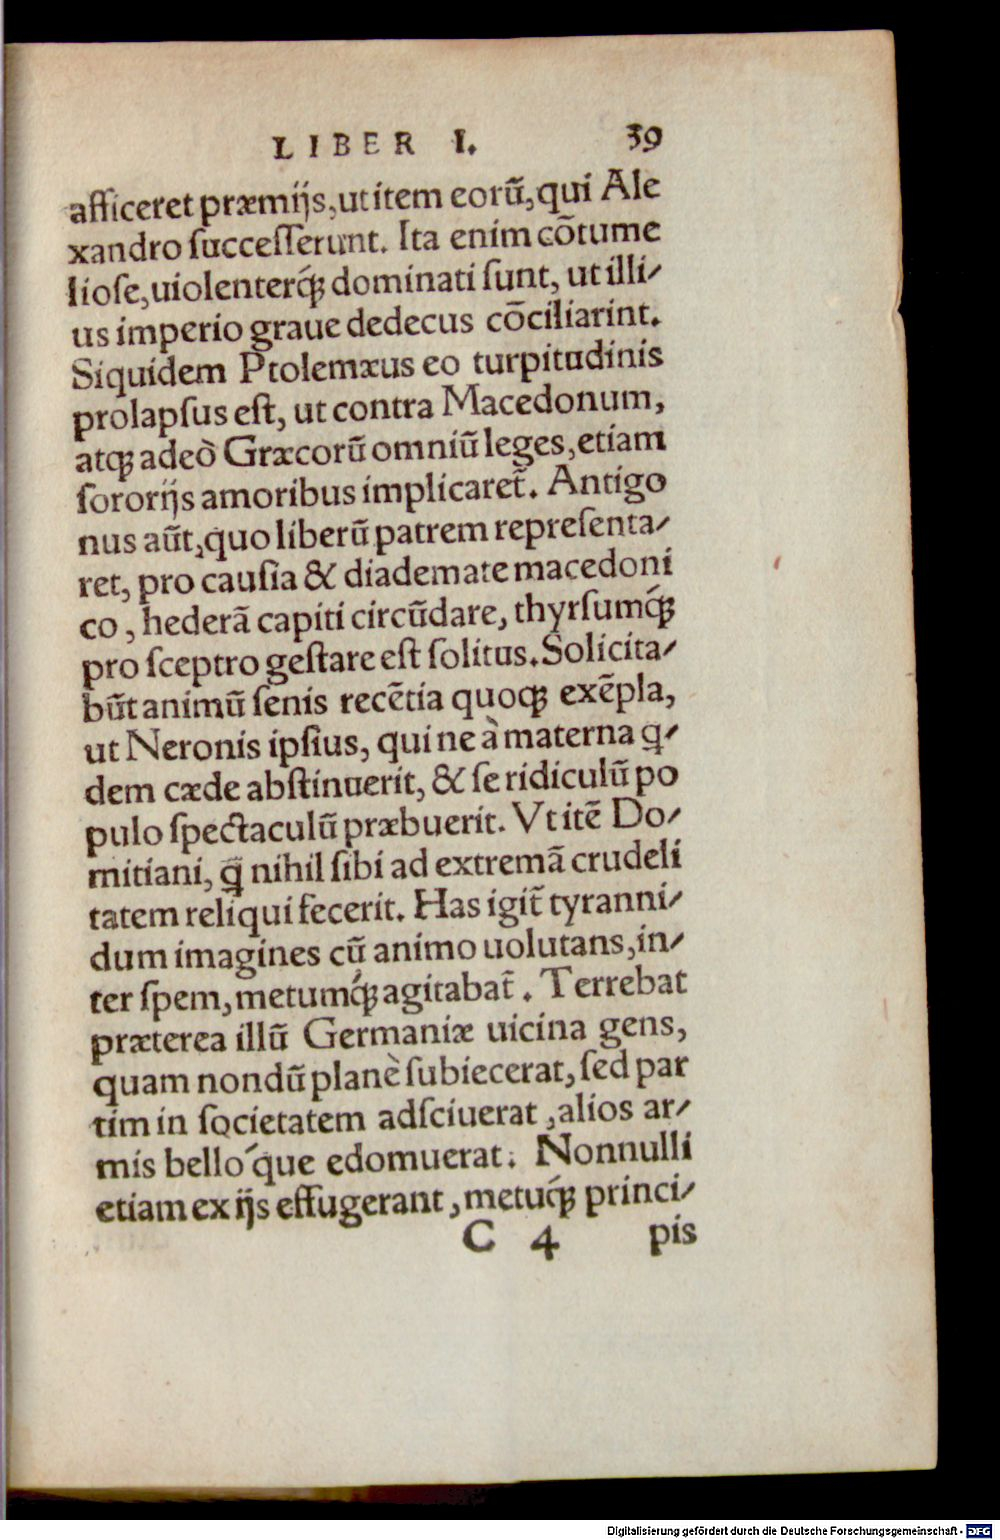 LIBER I. 39
afficeret præmijs, ut item eorũ, qui Ale
xandro ſucceſſerunt. Ita enim cõtume
lioſe, uiolenterq́ꝫ dominati ſunt, ut illi⸗
us imperio graue dedecus cõciliarint.
Siquidem Ptolemæus eo turpitudinis
prolapſus eſt, ut contra Macedonum,
atqꝫ adeò Græcorũ omniũ leges, etiam
ſororijs amoribus implicaret̃. Antigo
nus aũt, quo liberũ patrem repreſenta⸗
ret, pro cauſia & diademate macedoni
co, hederã capiti circũdare, thyrſumq́ꝫ
pro ſceptro geſtare eſt ſolitus. Solicita⸗
bũt animũ ſenis recẽtia quoqꝫ exẽpla,
ut Neronis ipſius, qui ne à materna q⸗
dem cæde abſtinuerit, & ſe ridiculũ po
pulo ſpectaculũ præbuerit. Vt itẽ Do⸗
mitiani, q̃ nihil ſibi ad extremã crudeli
tatem reliqui fecerit. Has igit̃ tyranni⸗
dum imagines cũ animo uolutans, in⸗
ter ſpem, metumq́ꝫ agitabat̃. Terrebat
præterea illũ Germaniæ uicina gens,
quam nondũ planè ſubiecerat, ſed par
tim in ſocietatem adſciuerat, alios ar⸗
mis bello´que edomuerat. Nonnulli
etiam ex ijs effugerant, metuq́ꝫ princi⸗
C 4 pis
Digitalisierung gefördert durch die Deutsche Forschungsgemeinschaft - DFG